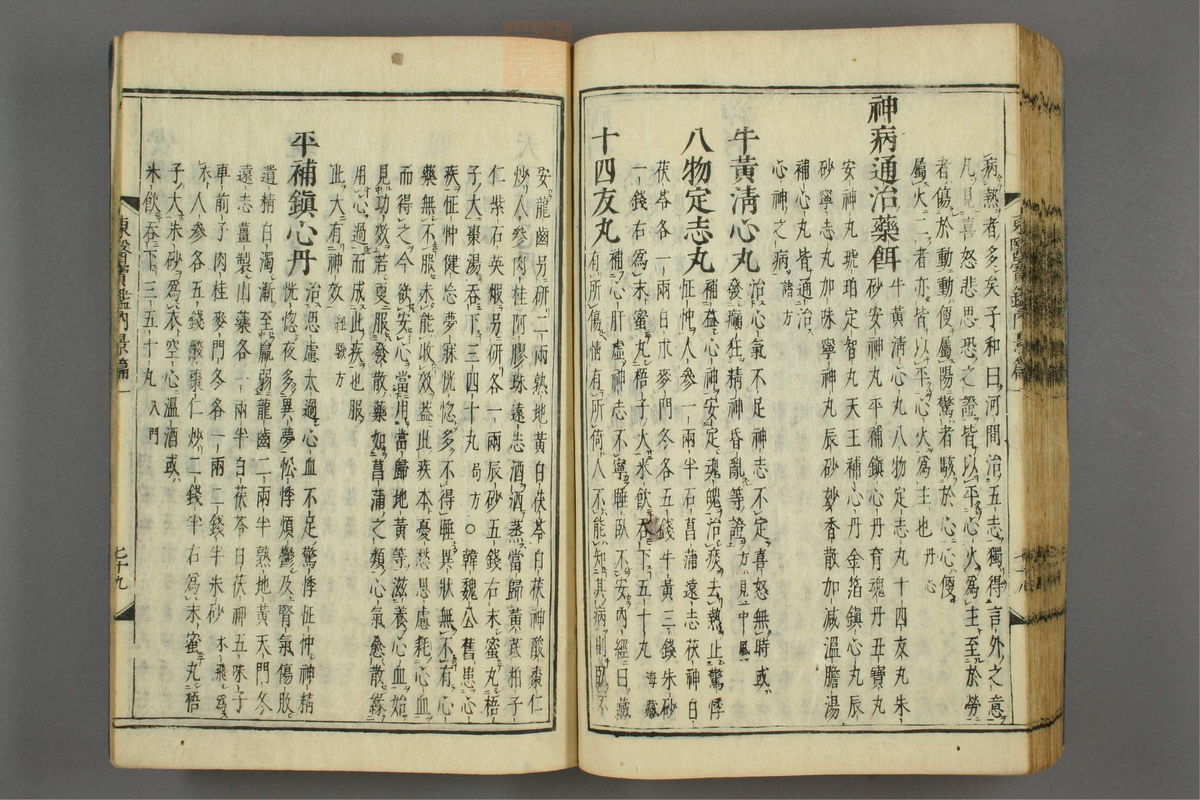 病熱者多矣子和曰河間治五志獨得言外之意
凡見喜怒悲思恐之證皆以平心火爲主至於勞
者傷於動動便屬陽驚者駭於心心便
屬火二者亦皆以平心火爲主也丹心
神病通治藥餌
牛黃淸心丸八物定志丸十四友丸朱
砂安神丸平補鎭心丹育魂丹丑寶丸
安神丸琥珀定智丸天王補心丹金箔鎭心丸辰
砂寧志丸加味寧神丸辰砂妙香散加減溫膽湯
補心丸皆通治
心神之病諸方
牛黃淸心丸
治心氣不足神志不定喜怒無時或
發癲狂精神昏亂等證方見中風
八物定志丸
補益心神安定魂魄治痰去熱止驚悸
怔忡人參一兩半石菖蒲遠志茯神白
茯苓各一兩白朮麥門冬各五錢牛黃三錢朱砂
一錢右爲末蜜丸梧子大米飮呑下五十丸海藏
十四友丸
補心肝虛神志不寧睡臥不安內經曰藏
有所傷情有所倚人不能知其病則臥不
安龍齒另硏二兩熟地黃白茯苓白茯神酸棗仁
炒人參肉桂阿膠珠遠志酒洒蒸當歸黃芪柏子
仁紫石英煆另硏各一兩辰砂五錢右末蜜丸梧
子大棗湯呑下三四十丸局方○韓魏公舊患心
疾怔忡健忘夢寐恍惚多不得睡異狀無不有心
藥無不服未能收效盖此疾本憂愁思慮耗心血
而得之今欲安心當用當歸地黃等滋養心血始
見功效若更服發散藥如菖蒲之類心氣愈散緣
用心過而成此疾也服
此大有神效經驗方
平補鎭心丹
治思慮太過心血不足驚悸怔忡神精
恍惚夜多異夢忪悸煩鬱及腎氣傷敗
遺精白濁漸至羸弱龍齒二兩半熟地黃天門冬
遠志薑製山藥各一兩半白茯苓白茯神五味子
車前子肉桂麥門冬各一兩二錢半朱砂水飛爲
衣人參各五錢酸棗仁炒二錢半右爲末蜜丸梧
子大朱砂爲衣空心溫酒或
米飮呑下三五十丸入門
東醫寶鑑內景篇一
七十八
東醫寶鑑內景篇一
七十九